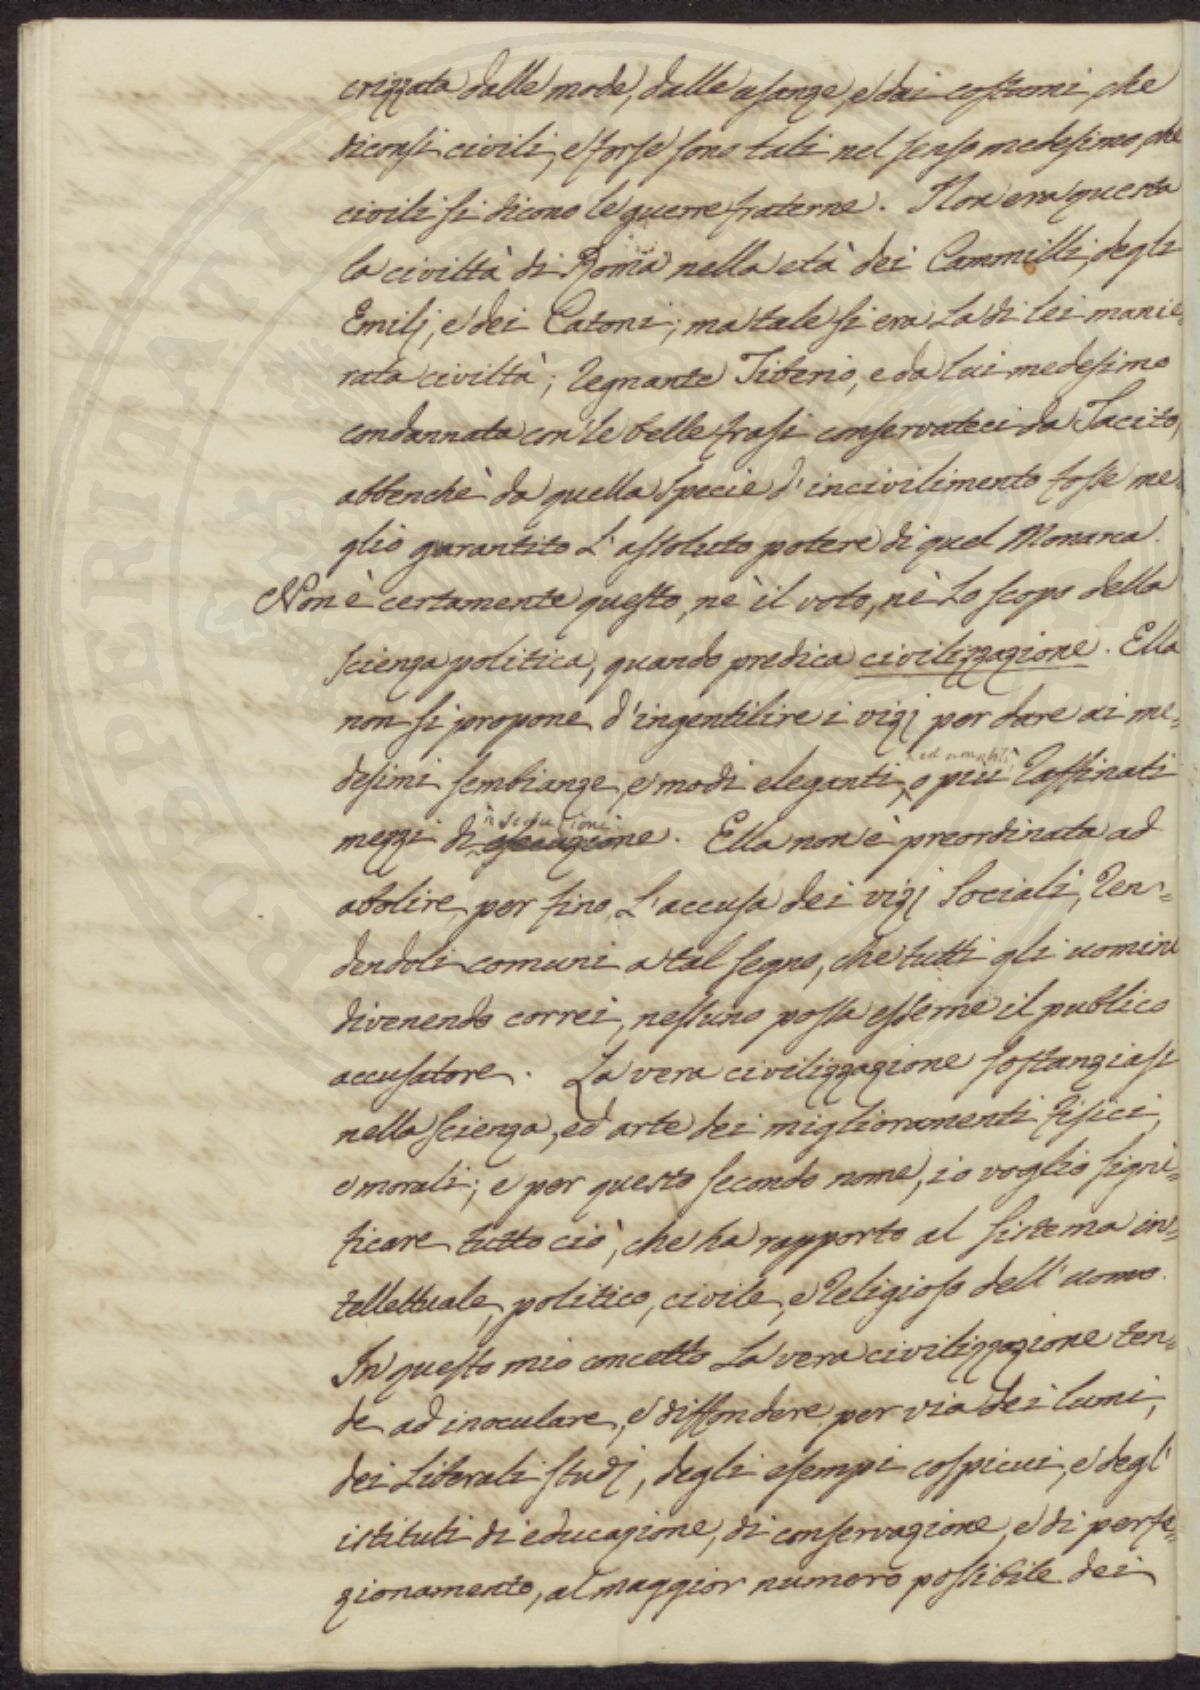 crizzata dalle mode, dalle usanze, e dai costumi, che
diconsi civili, e forse sono tali nel senso medesimo, che
civili si dicono le guerre fraterne. Non era questa
la civiltà di Roma nella età dei Cammilli, degli
Emilj, e dei Catoni; ma tale si era la di lei manie=
rata civiltà, regnante Tiberio, e da lui medesimo
condannata con le belle frasi conservateci da Tacito,
abbenchè da quella specie d'incivilimento fosse me=
glio garantito l'assoluto potere di quel Monarca.
Non è certamente questo, nè il voto, nè lo scopo della
scienza politica, quando predica civilizzazione. Ella
non si propone d'ingentilire i vizj per dare ai me=
desimi sembianze, e modi eleganti, o più raffinati
seduzioni
mezzi di. Ella non è preordinata ad
abolire per fino l'accusa dei vizj sociali, ren=
dendoli comuni a tal segno, che tutti gli uomini
divenendo correi, nessuno possa esserne il publico
accusatore. La vera civilizzazione sostanziasi
nella scienza, ed arte dei miglioramenti fisici,
e morali; e per questo secondo nome, io voglio signi=
ficare tutto ciò, che ha rapporto al sistema in=
tellettuale, politico, civile, e religioso dell'uomo.
In questo mio concetto la vera civilizzazione ten=
de ad inoculare, e diffondere per via dei lumi,
dei liberali studj, degli esempi cospicui, e degl'
istituti di educazione, di conservazione, e di perfe=
zionamento, al maggior numero possibile dei